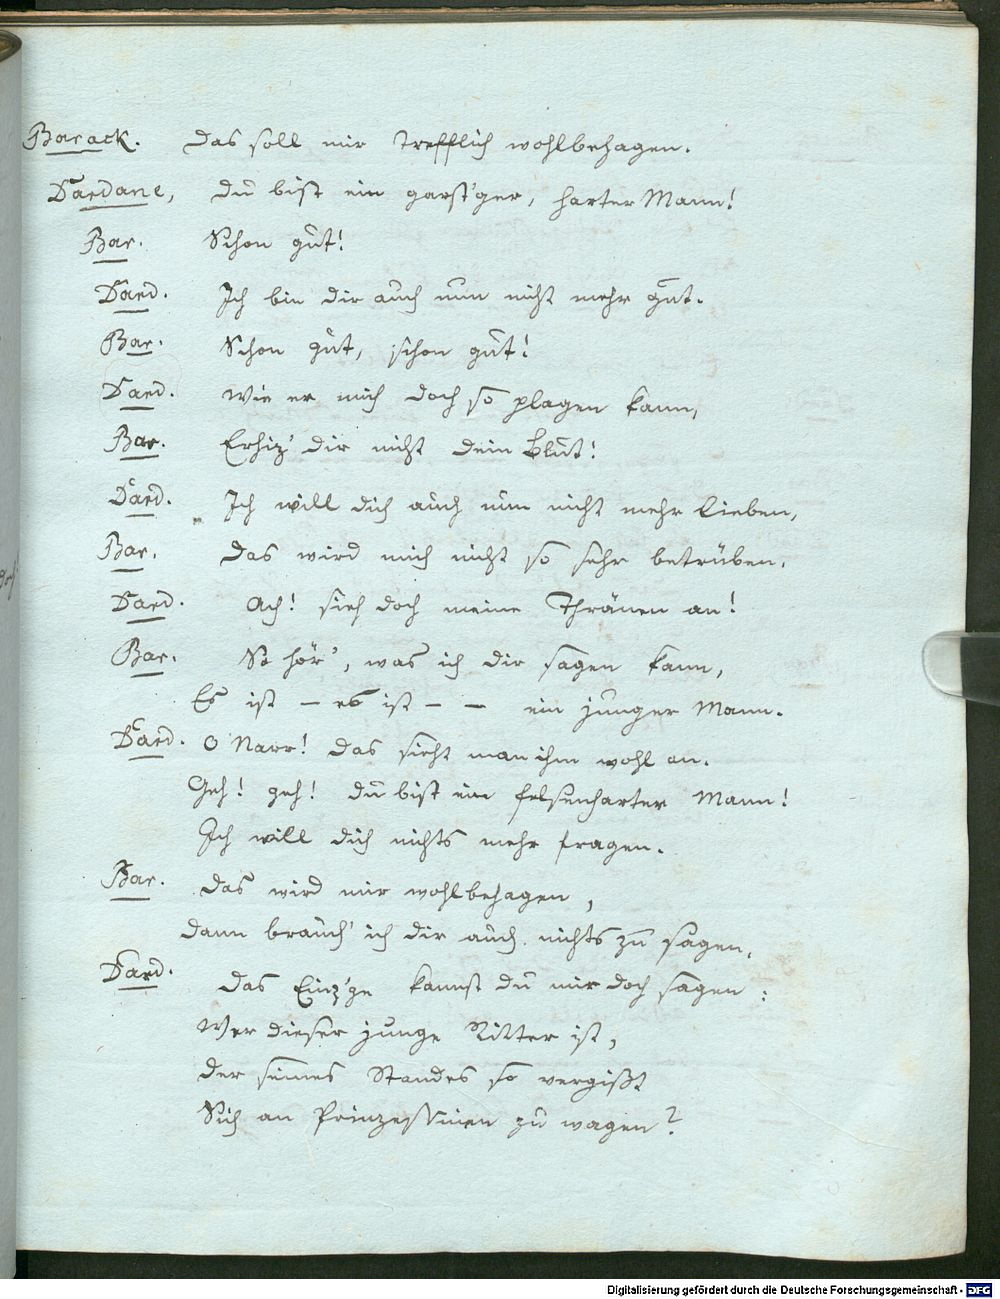 Barack. Das soll mir trefflich wohlbehagen.
Dardane, Du bist ein garst'ger, harter Mann!
Bar. Schon gut!
Dard. Ich bin dir auch nun nicht mehr gut.
Bar. Schon gut, schon gut!
Dard. Wie er mich doch so plagen kann,
Bar. Erhiz' dir nicht dein Blut!
Dard. Ich will dich auch nun nicht mehr lieben,
Bar. Das wird mich nicht so sehr betrüben.
Dard. Ach! sieh doch meine Thränen an!
Bar. So hör', was ich dir sagen kann,
Es ist – es ist – – ein junger Mann.
Dard. O Narr! das sieht man ihm wohl an.
Geh! geh! du bist ein felsenharter Mann!
Ich will dich nichts mehr fragen.
Bar. Das wird mir wohlbehagen,
dann brauch' ich dir auch nichts zu sagen.
Dard. Das Einz'ge kannst du mir doch sagen:
Wer dieser junge Ritter ist,
der seines Standes so vergißt
Sich an Prinzessinen zu wagen?
Digitalisierung gefördert durch die Deutsche Forschungsgemeinschaft - DFG